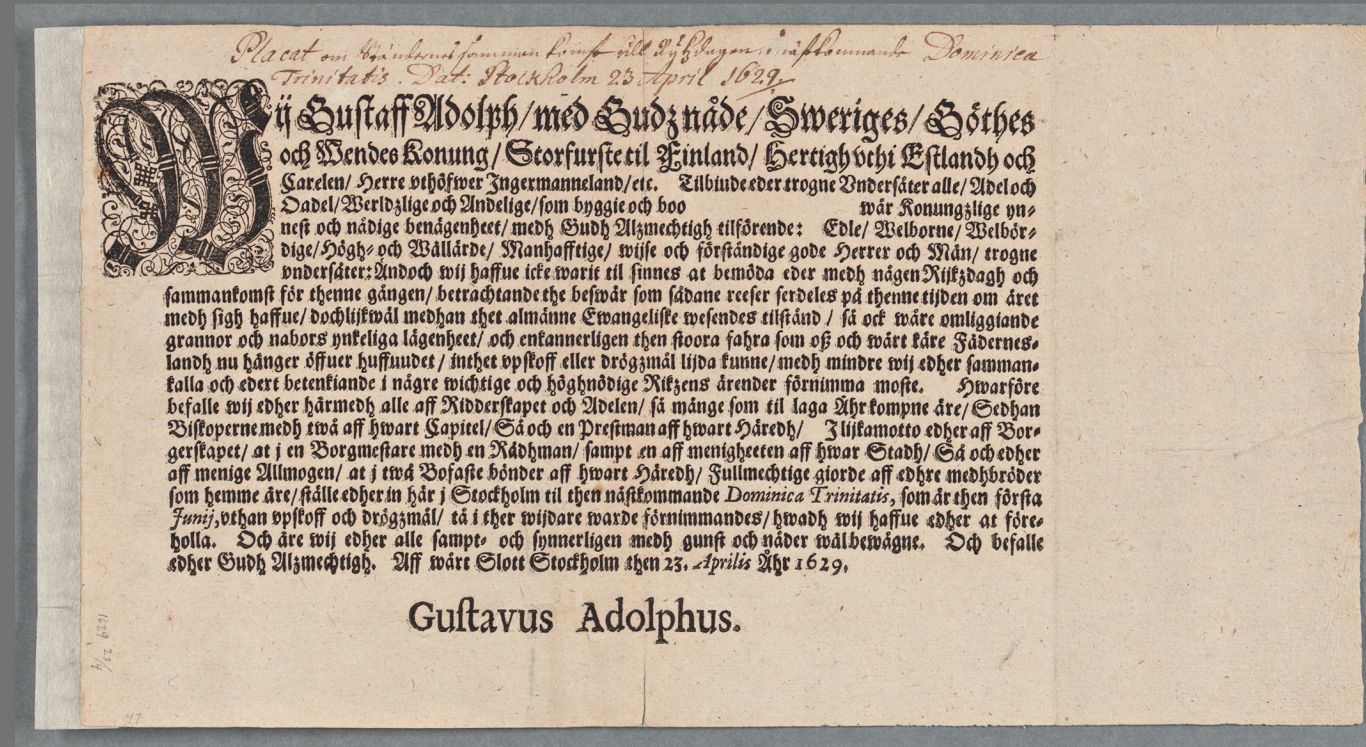 Placat om Ständernes sammankomst till Rijkzdagen, i nästkommande Dominica
Trinitatis. Dat: Stockholm 23 April 1629.
Wij Gustaff Adolph/ med Gudz nåde/ Sweriges/ Göthes
och Wendes Konung/ Storfurste til Finland/ Hertigh vthi Estlandh och
Carelen/ Herre vthöfwer Ingermanneland/ etc. Tilbiude eder trogne Vndersåter alle/ Adel och
Oadel/ Werldzlige och Andelige/ som byggie och boo wår Konungzlige yn-
nest och nådige benägenheet/ medh Gudh Alzmechtigh tilförende: Edle/ Welborne/ Welbör-
dige/ Högh- och Wällärde/ Manhafftige/ wijse och förståndige gode Herrer och Män/ trogne
vndersåter: Ändoch wij haffue icke warit til sinnes at bemöda eder medh någen Rijkzdagh och
sammankomst för thenne gången/ betrachtande the beswär som sådane reeser serdeles på thenne tijden om året
medh sigh haffue/ dochlijkwäl medhan thet almänne Ewangeliske wesendes tilstånd/ så ock wåre omliggiande
grannor och nabors ynkeliga lägenheet/ och enkannerligen then stoora fahra som oß och wårt käre Fädernes-
landh nu hänger öffuer huffuudet/ inthet vpskoff eller drögzmål lijda kunne/ medh mindre wij edher samman-
kalla och edert betenkiande i någre wichtige och höghnödige Rikzens ärender förnimma moste. Hwarföre
befalle wij edher härmedh alle aff Ridderskapet och Adelen/ så månge som til laga Åhr kompne äre/ Sedhan
Biskoperne medh twå aff hwart Capitel/ Så och en Prestman aff hwart Häredh/ Ilijkamotto edher aff Bor-
gerskapet/ at j en Borgmestare medh en Rådhman/ sampt en aff menigheeten aff hwar Stadh/ Så och edher
aff menige Allmogen/ at j twå Bofaste bönder aff hwart Häredh/ Fullmechtige giorde aff edhre medhbröder
som hemme äre/ ställe edher in här j Stockholm til then nästkommande Dominica Trinitatis, som är then första
Junij, vthan vpskoff och drögzmål/ tå i ther wijdare warde förnimmandes/ hwadh wij haffue edher at före-
holla. Och äre wij edher alle sampt- och synnerligen medh gunst och nåder wälbewägne. Och befalle
edher Gudh Alzmechtigh. Aff wårt Slott Stockholm then 23. Aprilis Åhr 1629.
Gustavus Adolphus.
1629 23/4
47